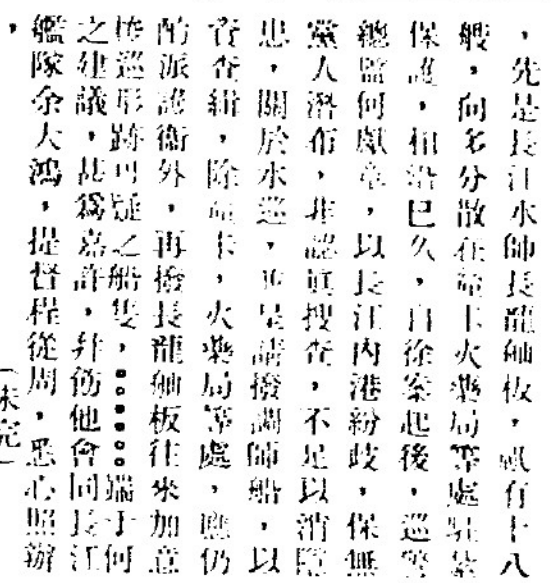 ，先是長江水師長龍舢板，祇有十八
艘，向多分散在電卡火藥局等處駐紮
保護，相沿已久，自徐案起後，巡警
總監何厥章，以長江內港紛歧，保無
黨人潛布，非認真搜查，不足以消隱
患，關於水巡，並呈請撥調師船，以
資查緝，除卡，火藥局等處，應仍
酌派護衛外，再撥長龍舢板往來加意
巡形跡可疑之船隻，端于何
之建議，甚為嘉許，幷飭他會同長江
艦隊余大鴻，提督程從周，悉心照辦
，
（未完）